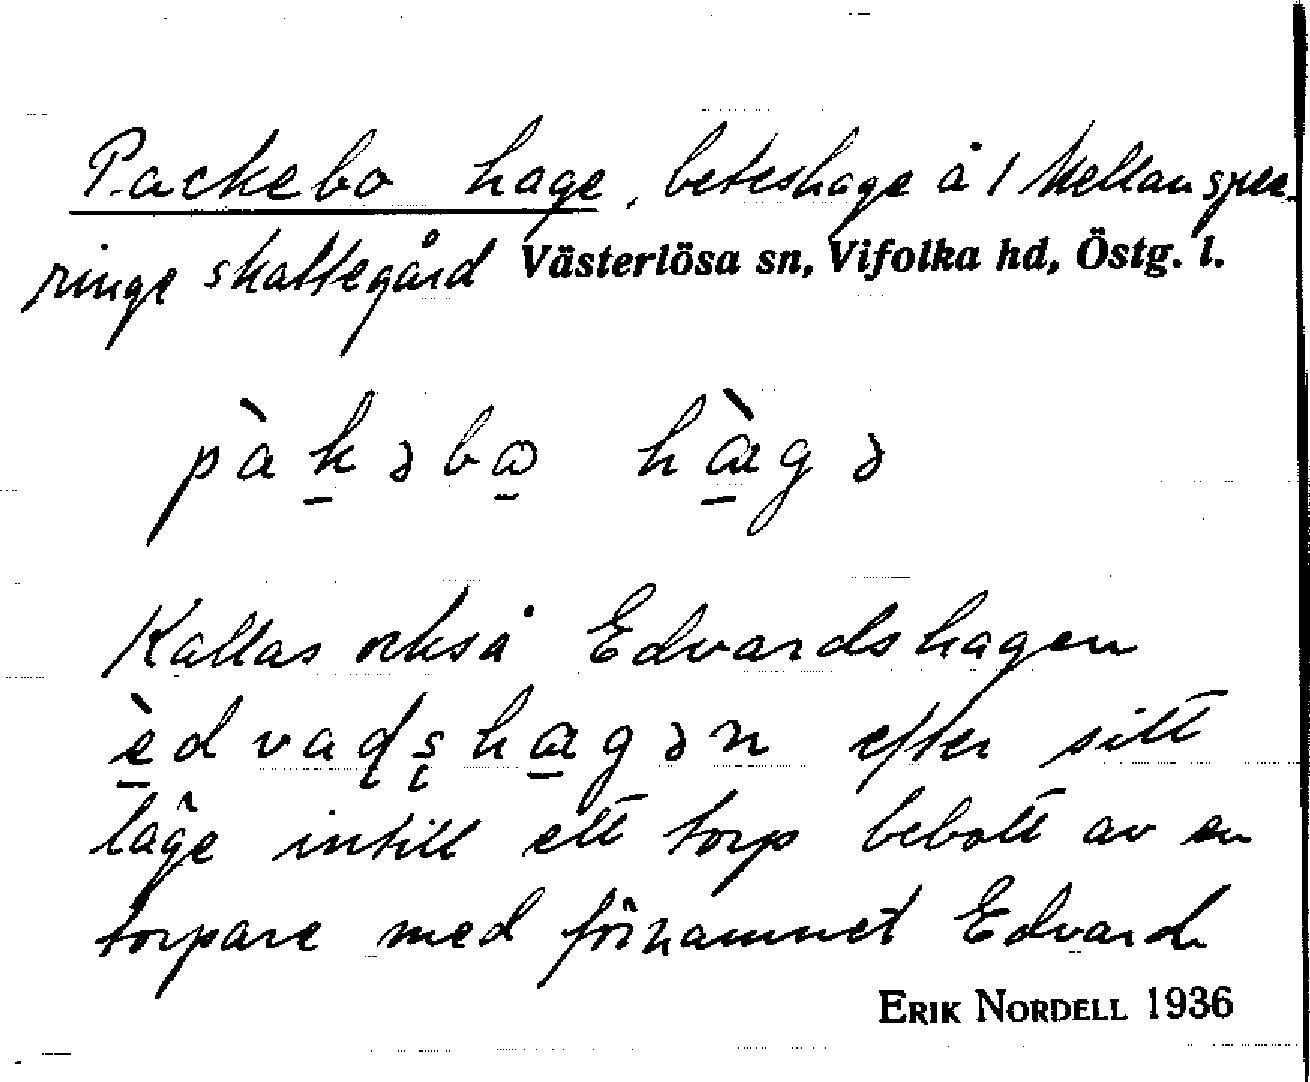 Packebo hage, beteshage å 1 Mellansper-
ringe skattegård Västerlösa sn, Vifolka hd, Östg. l.
pàkəbɷ hàgə
Kallas också Edvardshagen
èdvaɖʂhagən efter sitt
läge intill ett torp bebott av en
torpare med förnamnet Edvard
ERIK NORDELL 1936